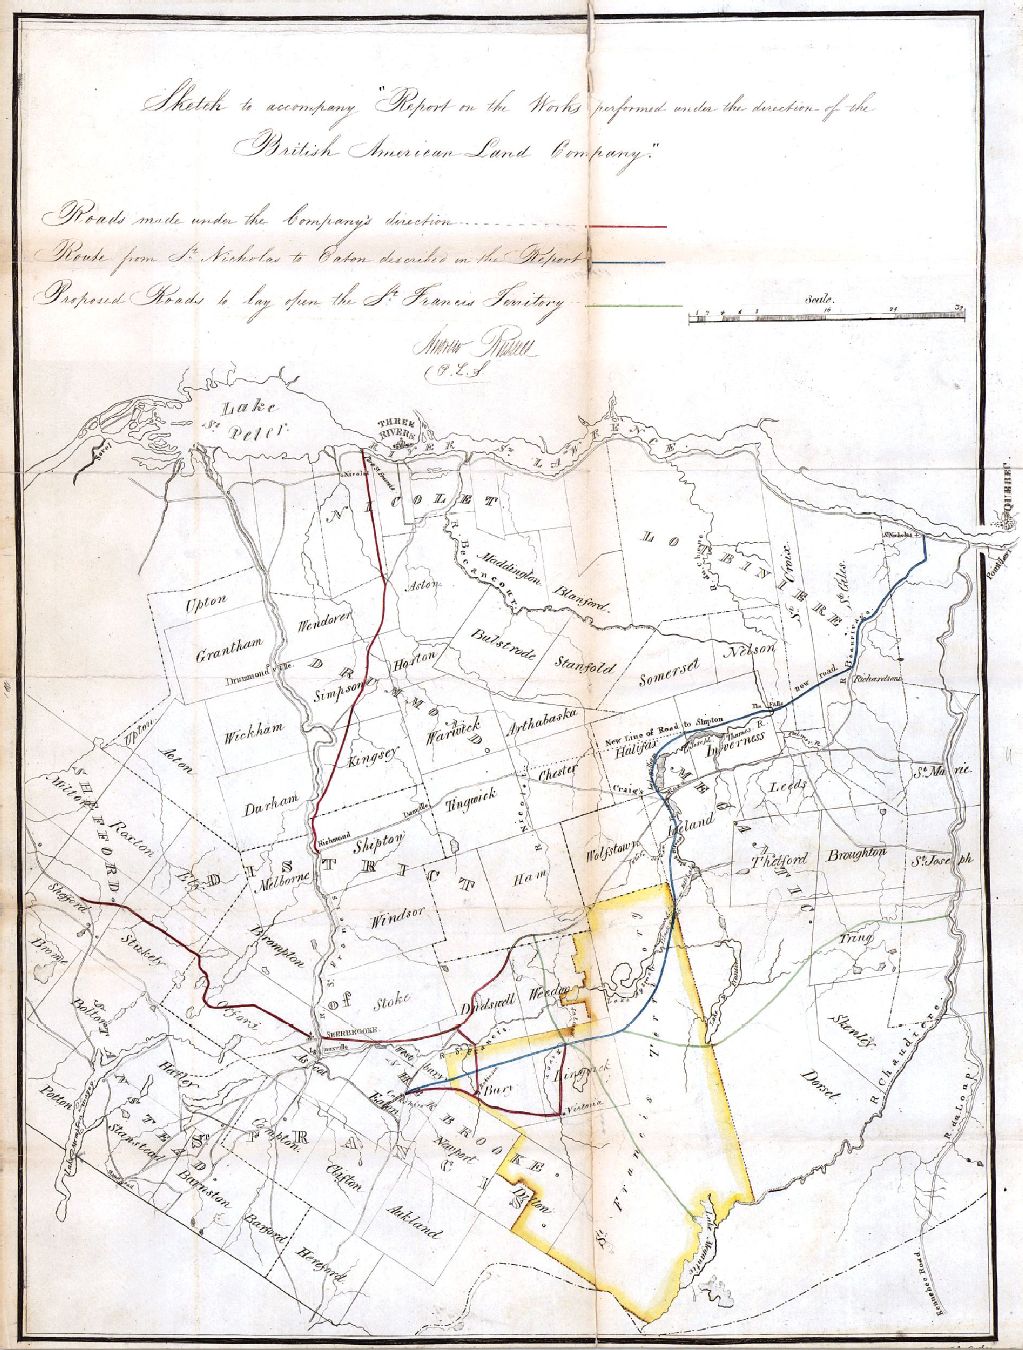 Sketch to accompany "Report on the Works performed under the direction of the
British American Land Company."
Roads made under the Company's direction
Route from St. Nicholas to Eaton described in the Report
Proposed Roads to lay open the St. Francis Territory
Scale.
Andrew Russell
P.L.S
Lake
St. Peter
THREE
RIVERS
RIVER ST. LAWRENCE
Sorel
QUEBEC
Nicolet
NICOLET
LOTBINIERE
St. Nicholas
St. Croix
St. Giles
R. Becancour
Maddington
Blanford
Aston
Upton
Grantham
Wendover
Drummond Ville
Simpson
Horton
Bulstrode
Stanfold
Somerset
Nelson
R. Beaurivage
New road
Richardsons
Wickham
DRUMMOND
Kingsey
Warwick
Arthabaska
New Line of Road to Shipton
Halifax
Inverness
The Falls
Thames R.
Upton
Acton
Durham
Danville
Tingwick
Chester
Craig's
Leeds
St. Marie
SHEFFORD
Milton
Roxton
Ely
Richmond
Shipton
Melbourne
DISTRICT
Nicolet R
Wolfstown
Ireland
MEGANTIC
Thetford
Broughton
St. Joseph
Ham
Windsor
Shefford
Stukely
Brompton
R. St. Francis
Brome
Bolton
Orford
of
Stoke
Dudswell
Weedon
Tring
Shenley
Dorset
R. Chaudière
R. du Loup
SHERBROOKE
Lennoxville
Ascot
Westbury
R. St. Francis
Bury
Lingwick
Victoria
Eaton
Hatley
Potton
Stanstead
STANSTEAD
Compton
Clifton
Newport
Ditton
ST. FRANCIS
St. Francis Territory
Barnston
Barford
Hereford
Aukland
Lake Megantic
Kennebec Road